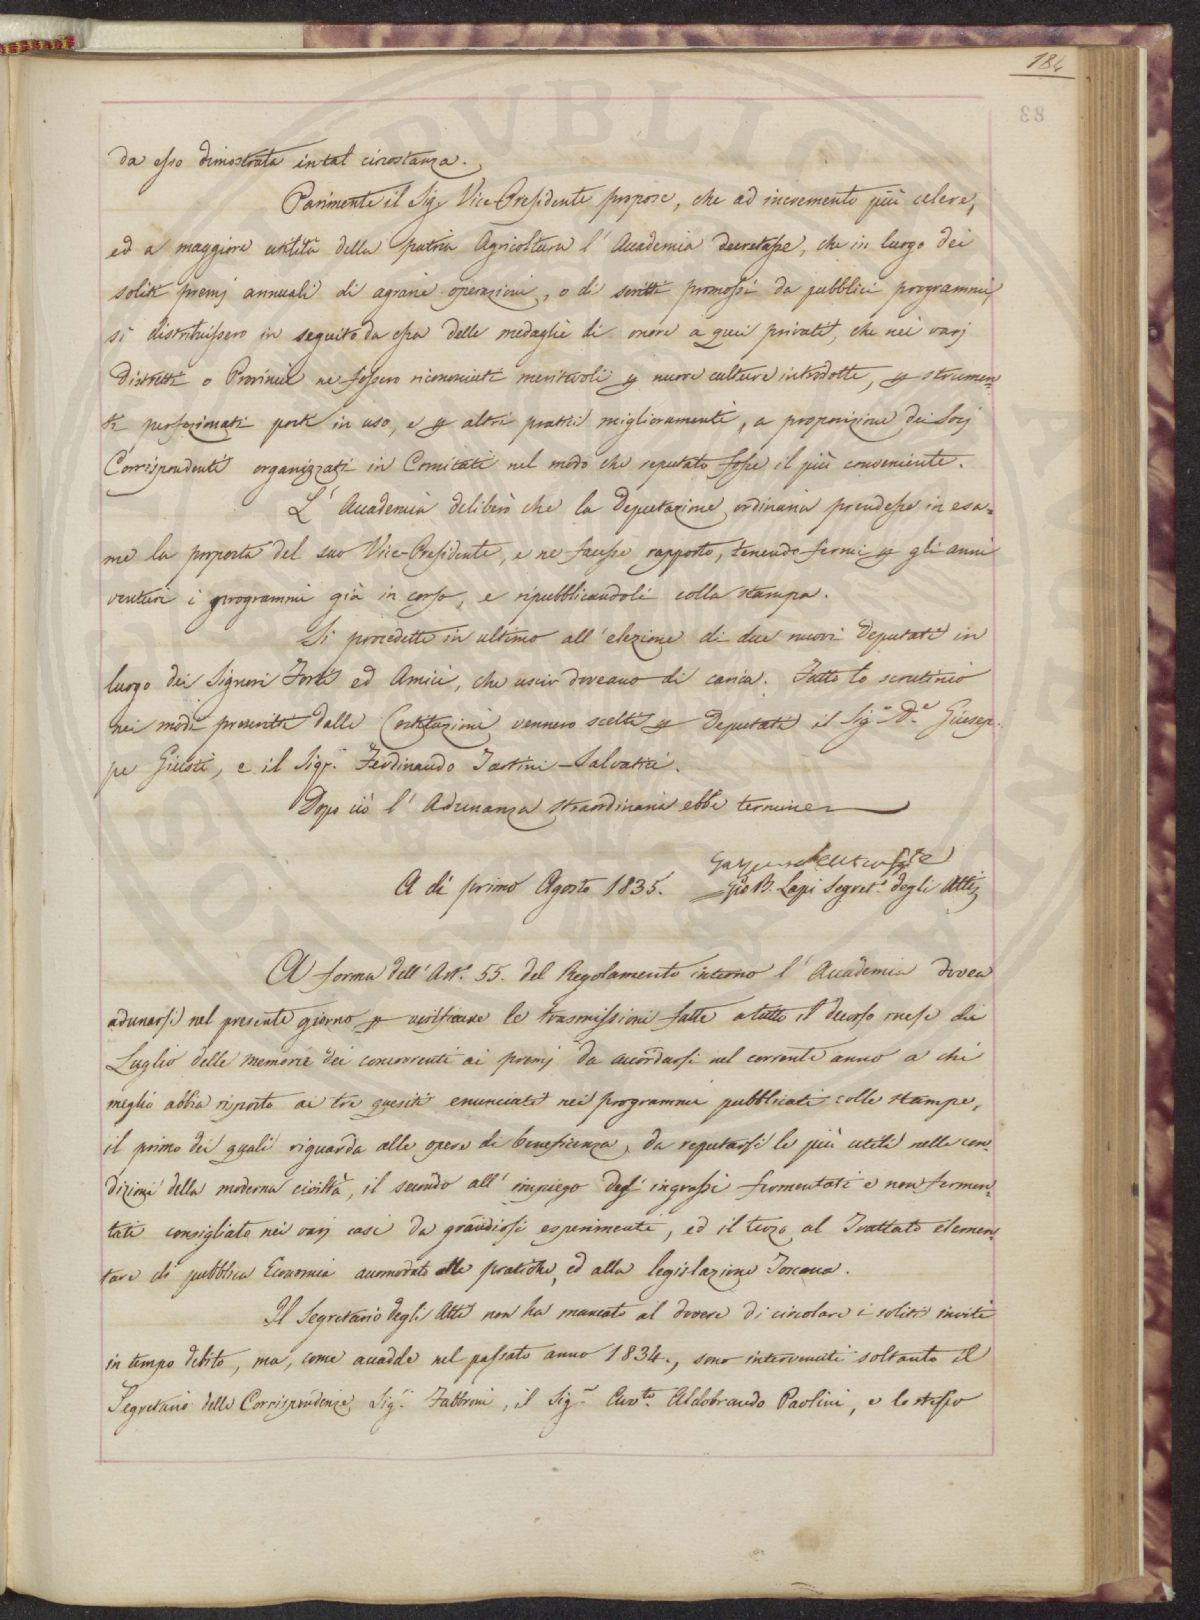 184
83
da esso dimostrata in tal circostanza.
Parimente il Sig. Vice-Presidente propose, che ad incremento più celere,
ed a maggiore utilità della patria Agricoltura l'Accademia decretasse, che in luogo dei
soliti premj annuali di agrarie operazioni, o di scritti promossi da pubblici programmi,
si distribuissero in seguito da essa delle medaglie di onore a quei privati, che nei varj
Distretti o Provincie ne fossero riconosciuti meritevoli p nuove culture introdotte, p strumen=
ti perfezionati posti in uso, e p altri pratici miglioramenti, a proposizione dei Socj
Corrispondenti organizzati in Comitati nel modo che reputato fosse il più conveniente.
L'Accademia deliberò che la Deputazione ordinaria prendesse in esa=
me la proposta del suo Vice-Presidente, e ne facesse rapporto, tenendo fermi p gli anni
venturi i programmi già in corso, e ripubblicandoli colla stampa.
Si procedette in ultimo all'elezione di due nuovi Deputati in
luogo dei Signori Forti ed Amici, che uscir doveano di carica. Fatto lo scrutinio
nei modi prescritti dalle Costituzioni vennero scelti p Deputati il Sig.r D.r Giusep-
pe Giusti, e il Sig.r Ferdinando Tartini-Salvatici.
Dopo ciò l'Adunanza straordinaria ebbe termine
A dì primo Agosto 1835. Gio B. Lapi Segret.o degli Atti
A forma dell'Art.o 55. del Regolamento interno l'Accademia dovea
adunarsi nel presente giorno p verificare le trasmissioni fatte a tutto il decorso mese di
Luglio delle memorie dei concorrenti ai premj da accordarsi nel corrente anno a chi
meglio abbia risposto ai tre quesiti enunciati nei programmi pubblicati colle stampe,
il primo dei quali riguarda alle opere di beneficenza, da reputarsi le più utili nelle con-
dizioni della moderna civiltà, il secondo all'impiego degl'ingrassi fermentati e non fermen-
tati consigliato nei varj casi da grandiosi esperimenti, ed il terzo al Trattato elemen-
tare di pubblica Economia accomodato alle pratiche, ed alla legislazione Toscana.
Il Segretario degli Atti non ha mancato al dovere di circolare i soliti inviti
in tempo debito, ma, come accadde nel passato anno 1834., sono intervenuti soltanto il
Segretario delle Corrispondenze Sig.r Fabbroni, il Sig.r Avv.to Aldobrando Paolini, e lo stesso